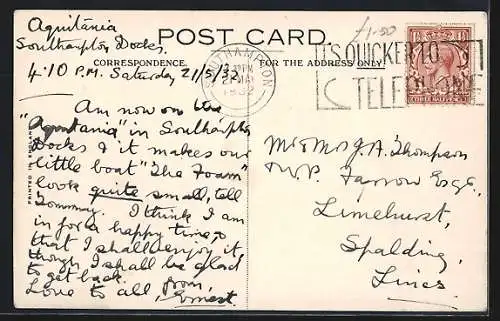 Aquitania
Southampton Docks.
4.10 P.M. Saturday 21/5/32.
£1-50
POST CARD.
CORRESPONDENCE.
FOR THE ADDRESS ONLY.
SOUTHAMPTON
1932
IT'S QUICKER TO
TELEPHONE
THREE HALFPENCE
PRINTED IN ENGLAND
Am now on the
"Aquitania" in Southampton
Docks & it makes our
little boat "The Foam"
look quite small, tell
Tommy. I think I am
in for a happy time &
that I shall enjoy it
though I shall be glad
to get back.
Love to all from,
Ernest.
Mr & Mrs J. A. Thompson
Farrow Esq.,
Limehurst,
Spalding,
Lincs.